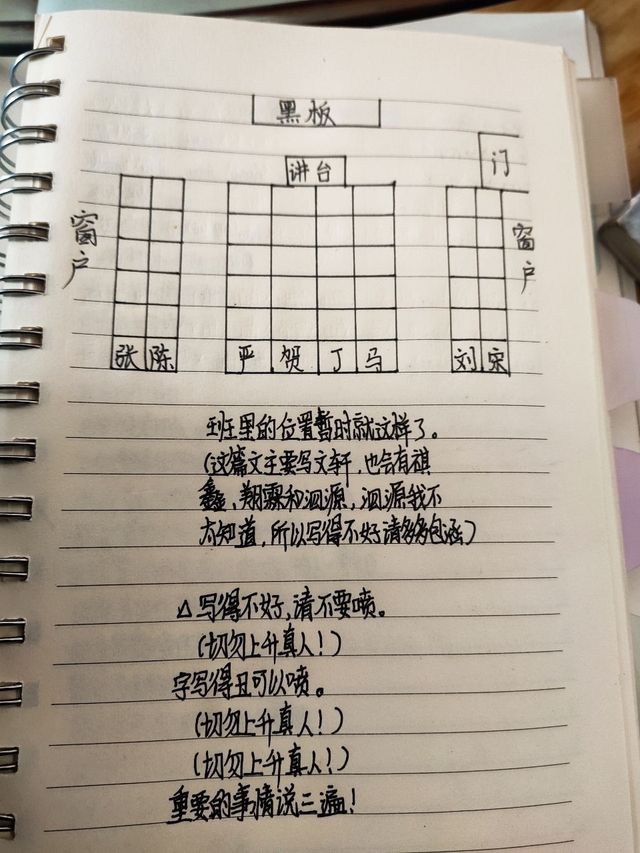 黑板
讲台
门
窗户
窗户
张 陈 严 贺 丁 马 刘 宋
班里的位置暂时就这样了。
(这篇文主要写文轩，也会有祺
鑫、翔霖和泗源，泗源我不
太知道，所以写得不好请多多包涵)
△写得不好，请不要喷。
(切勿上升真人！)
字写得丑可以喷。
(切勿上升真人！)
(切勿上升真人！)
重要的事情说三遍！